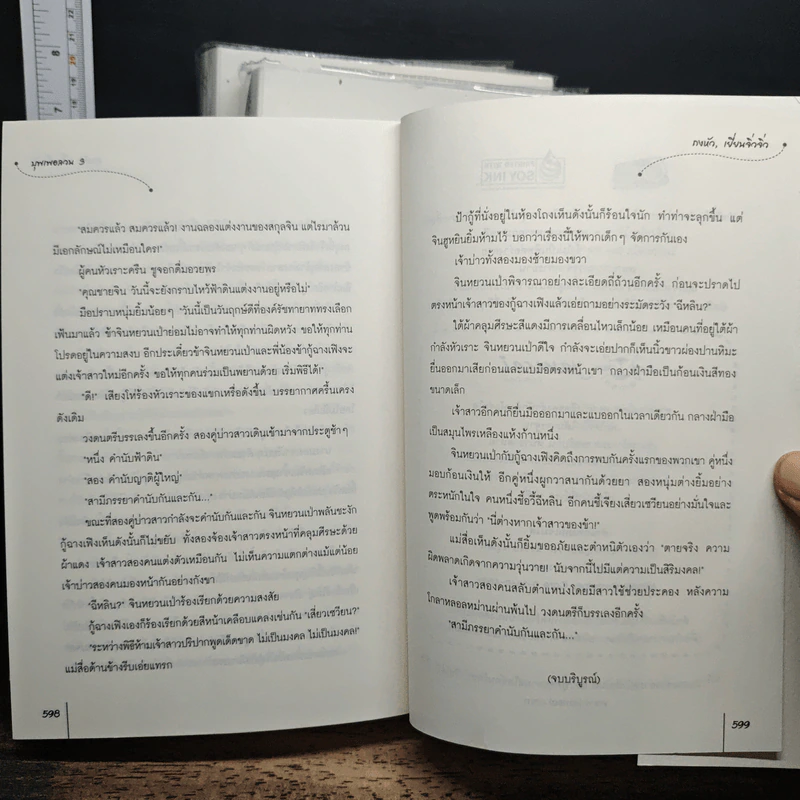 บุพเพอลวน 3
"สมควรแล้ว สมควรแล้ว! งานฉลองแต่งงานของสกุลจิน แต่ไรมาล้วน
มีเอกลักษณ์ไม่เหมือนใคร!"
ผู้คนหัวเราะครืน ชูจอกดื่มอวยพร
"คุณชายจิน วันนี้จะยังกราบไหว้ฟ้าดินแต่งงานอยู่หรือไม่"
มือปราบหนุ่มยิ้มน้อยๆ "วันนี้เป็นวันฤกษ์ดีที่องค์รัชทายาททรงเลือก
เฟ้นมาแล้ว ข้าจินหยวนเป่าย่อมไม่อาจทำให้ทุกท่านผิดหวัง ขอให้ทุกท่าน
โปรดอยู่ในความสงบ อีกประเดี๋ยวข้าจินหยวนเป่าและพี่น้องข้ากู้ฉางเฟิงจะ
แต่งเจ้าสาวใหม่อีกครั้ง ขอให้ทุกคนร่วมเป็นพยานด้วย เริ่มพิธีได้!"
"ดี!" เสียงโห่ร้องหัวเราะของแขกเหรื่อดังขึ้น บรรยากาศครื้นเครง
ดังเดิม
วงดนตรีบรรเลงขึ้นอีกครั้ง สองคู่บ่าวสาวเดินเข้ามาจากประตูช้าๆ
"หนึ่ง คำนับฟ้าดิน"
"สอง คำนับญาติผู้ใหญ่"
"สามีภรรยาคำนับกันและกัน..."
ขณะที่สองคู่บ่าวสาวกำลังจะคำนับกันและกัน จินหยวนเป่าพลันชะงัก
กู้ฉางเฟิงเห็นดังนั้นก็ไม่ขยับ ทั้งสองจ้องเจ้าสาวตรงหน้าที่คลุมศีรษะด้วย
ผ้าแดง เจ้าสาวสองคนแต่งตัวเหมือนกัน ไม่เห็นความแตกต่างแม้แต่น้อย
เจ้าบ่าวสองคนมองหน้ากันอย่างกังขา
"ฉีหลิน?" จินหยวนเป่าร้องเรียกด้วยความสงสัย
กู้ฉางเฟิงเองก็ร้องเรียกด้วยสีหน้าเคลือบแคลงเช่นกัน "เสี่ยวเซวียน?"
"ระหว่างพิธีห้ามเจ้าสาวปริปากพูดเด็ดขาด ไม่เป็นมงคล ไม่เป็นมงคล!"
แม่สื่อด้านข้างรีบเอ่ยแทรก
598
ถงหัว, เยี่ยนจิ่วจิ่ว
SOY INK
ป้ากู้ที่นั่งอยู่ในห้องโถงเห็นดังนั้นก็ร้อนใจนัก ทำท่าจะลุกขึ้น แต่
จินฮูหยินยิ้มห้ามไว้ บอกว่าเรื่องนี้ให้พวกเด็กๆ จัดการกันเอง
เจ้าบ่าวทั้งสองมองซ้ายมองขวา
จินหยวนเป่าพิจารณาอย่างละเอียดถี่ถ้วนอีกครั้ง ก่อนจะปราดไป
ตรงหน้าเจ้าสาวของกู้ฉางเฟิงแล้วเอ่ยถามอย่างระมัดระวัง "ฉีหลิน?"
ใต้ผ้าคลุมศีรษะสีแดงมีการเคลื่อนไหวเล็กน้อย เหมือนคนที่อยู่ใต้ผ้า
กำลังหัวเราะ จินหยวนเป่าดีใจ กำลังจะเอ่ยปากก็เห็นนิ้วขาวผ่องปานหิมะ
ยื่นออกมาเสียก่อนและแบมือตรงหน้าเขา กลางฝ่ามือเป็นก้อนเงินสีทอง
ขนาดเล็ก
เจ้าสาวอีกคนก็ยื่นมือออกมาและแบออกในเวลาเดียวกัน กลางฝ่ามือ
เป็นสมุนไพรเหลืองแห้งก้านหนึ่ง
จินหยวนเป่ากับกู้ฉางเฟิงคิดถึงการพบกันครั้งแรกของพวกเขา คู่หนึ่ง
มอบก้อนเงินให้ อีกคู่หนึ่งผูกวาสนากันด้วยยา สองหนุ่มต่างยิ้มอย่าง
ตระหนักในใจ คนหนึ่งชื้อวี้ฉีหลิน อีกคนชี้เจียงเสี่ยวเซวียนอย่างมั่นใจและ
พูดพร้อมกันว่า "นี่ต่างหากเจ้าสาวของข้า!"
แม่สื่อเห็นดังนั้นก็ยิ้มขออภัยและตำหนิตัวเองว่า "ตายจริง ความ
ผิดพลาดเกิดจากความวุ่นวาย! นับจากนี้ไปมีแต่ความเป็นสิริมงคล!"
เจ้าสาวสองคนสลับตำแหน่งโดยมีสาวใช้ช่วยประคอง หลังความ
โกลาหลอลหม่านผ่านพ้นไป วงดนตรีก็บรรเลงอีกครั้ง
"สามีภรรยาคำนับกันและกัน..."
(จบบริบูรณ์)
599